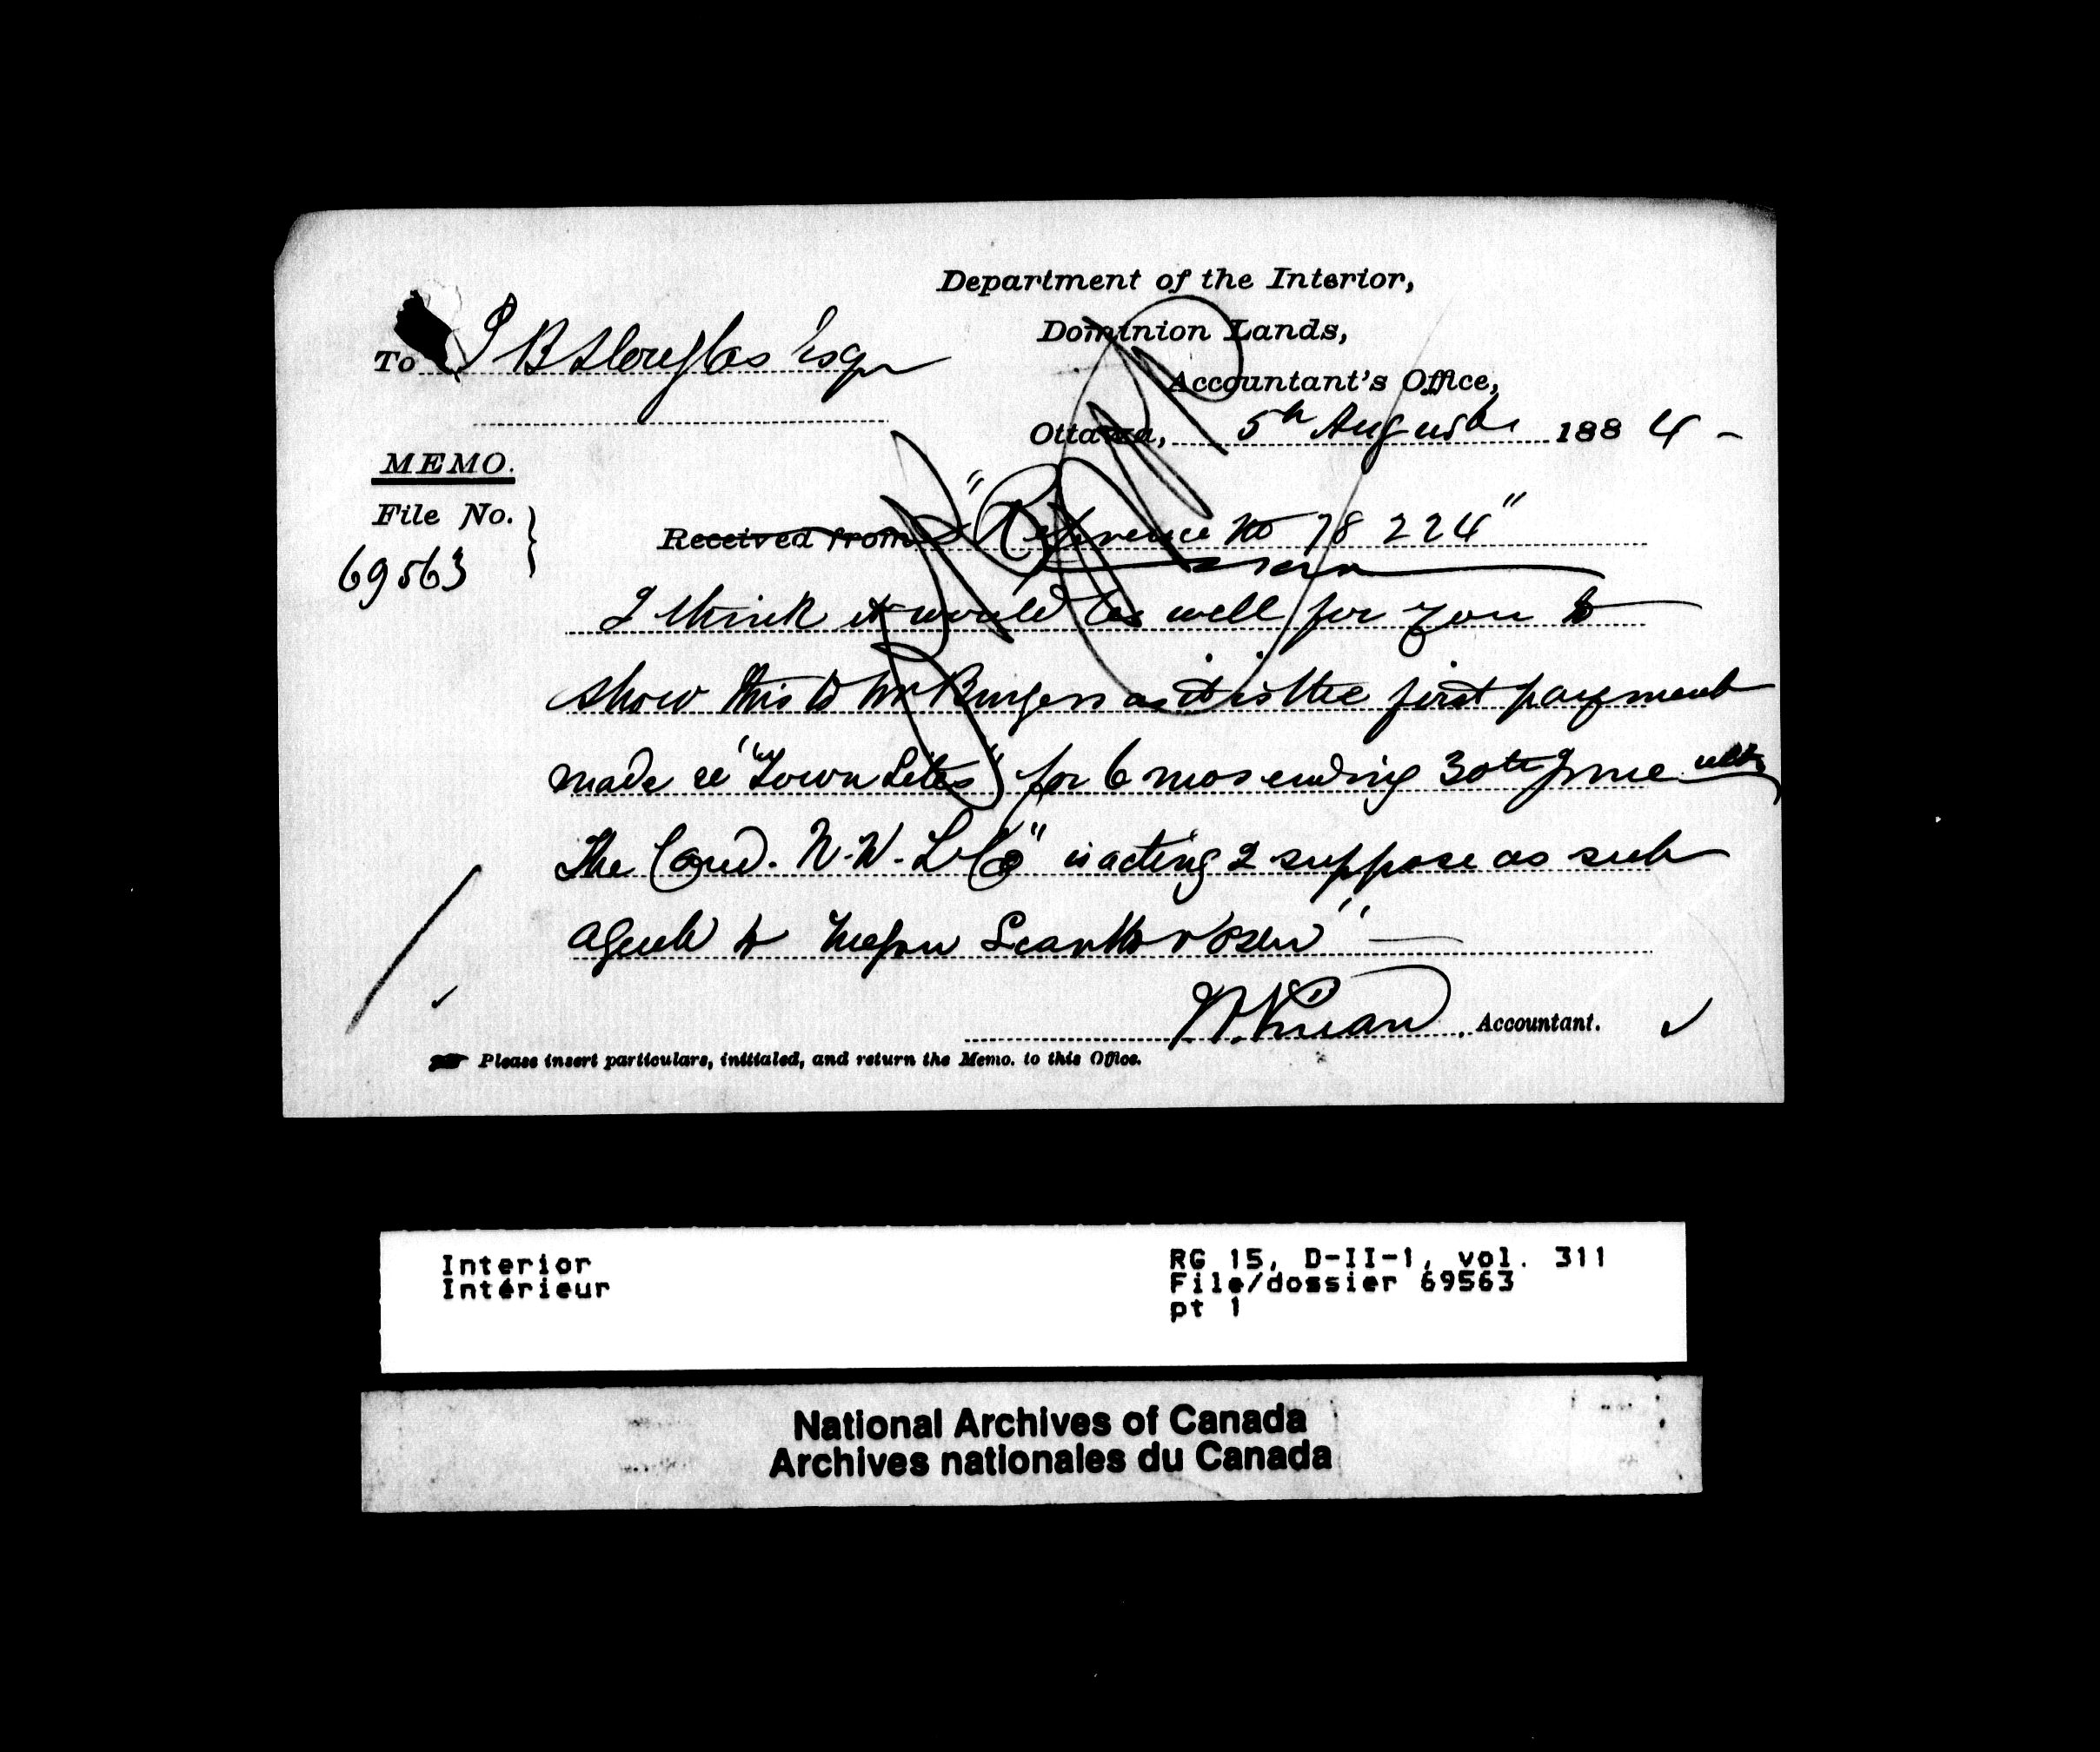 Department of the Interior,
Dominion Lands,
Accountant's Office,
To P B Douglas Esqr
Ottawa, 5th August 1884 -
MEMO.
File No.
69563
Received from "Reference No 78 224"
I think it would be well for you to
show this to Mr Burgess as it is the first payment
made re "Town Sites" for 6 mos ending 30th June ulto
The Cand. N. W. L Co" is acting I suppose as sub
agent to Messrs Scarth & Osler" —
Accountant.
Please insert particulars, initialed, and return the Memo. to this Office.
Interior
Intérieur
RG 15, D-II-1, vol. 311
File/dossier 69563
pt 1
National Archives of Canada
Archives nationales du Canada